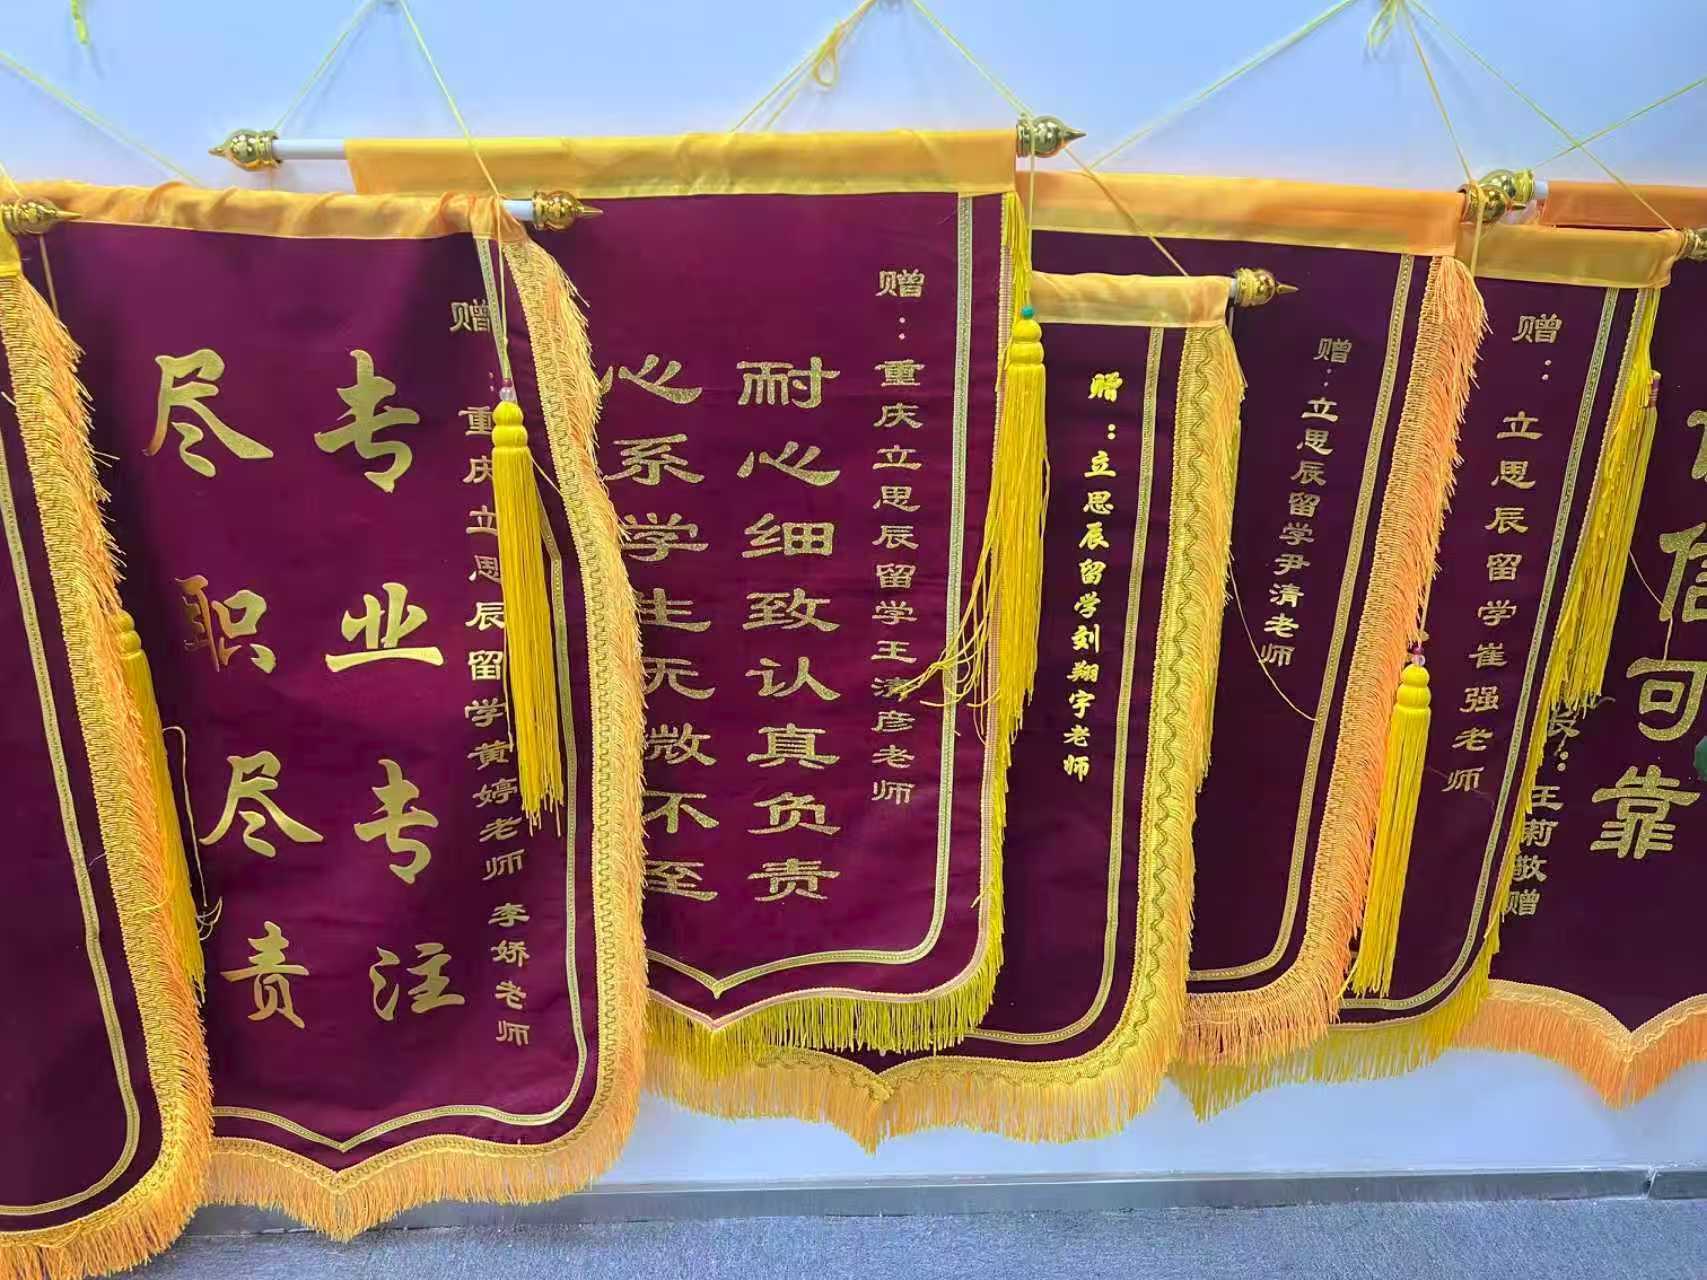 赠：重庆立思辰留学黄婷老师 李娇老师
专业专注
尽职尽责
赠：重庆立思辰留学王清彦老师
耐心细致认真负责
心系学生无微不至
赠：立思辰留学刘翔宇老师
赠：立思辰留学尹清老师
赠：立思辰留学崔强老师
信可靠
王莉敬赠